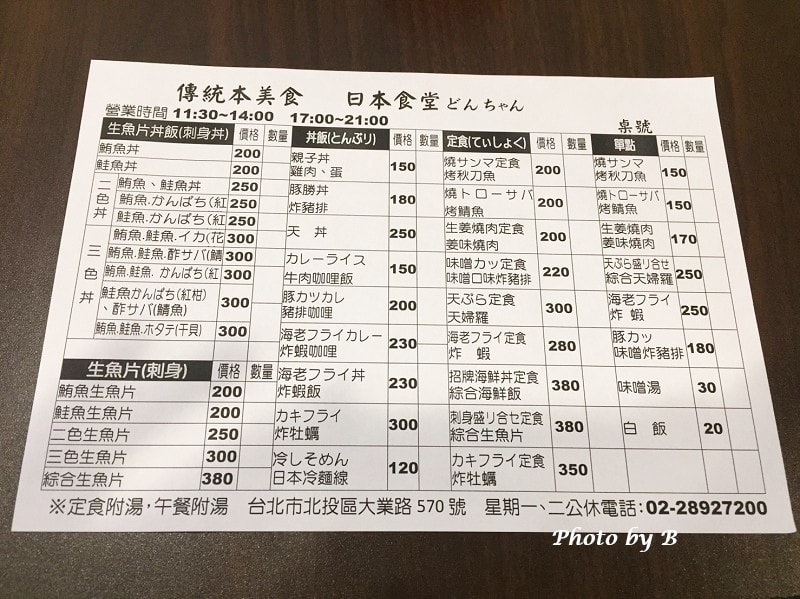 傳統本美食 日本食堂 どんちゃん
營業時間 11:30~14:00 17:00~21:00
桌號
生魚片丼飯(刺身丼) 價格 數量
鮪魚丼 200
鮭魚丼 200
二色丼
鮪魚、鮭魚丼 250
鮪魚.かんぱち(紅 250
鮭魚.かんぱち(紅 250
三色丼
鮪魚.鮭魚.イカ(花 300
鮪魚.鮭魚.酢サバ(鯖 300
鮪魚.鮭魚. かんぱち(紅 300
鮭魚かんぱち(紅柑)
、酢サバ(鯖魚) 300
鮪魚.鮭魚.ホタテ(干貝) 300
生魚片(刺身) 價格 數量
鮪魚生魚片 200
鮭魚生魚片 200
二色生魚片 250
三色生魚片 300
綜合生魚片 380
丼飯(とんぶり) 價格 數量
親子丼
雞肉、蛋 150
豚勝丼
炸豬排 180
天 丼 250
カレーライス
牛肉咖哩飯 150
豚カツカレ
豬排咖哩 200
海老フライカレー
炸蝦咖哩 230
海老フライ丼
炸蝦飯 230
カキフライ
炸牡蠣 300
冷しそめん
日本冷麵線 120
定食(ていしょく) 價格 數量
燒サンマ定食
烤秋刀魚 200
燒トローサバ
烤鯖魚 200
生姜燒肉定食
姜味燒肉 200
味噌カッ定食
味噌口味炸豬排 220
天ぷら定食
天婦羅 300
海老フライ定食
炸 蝦 280
招牌海鮮丼定食
綜合海鮮飯 380
刺身盛り合せ定食
綜合生魚片 380
カキフライ定食
炸牡蠣 350
單點 價格 數量
燒サンマ
烤秋刀魚 150
燒トローサバ
烤鯖魚 150
生姜燒肉
姜味燒肉 170
天ぷら盛り合せ
綜合天婦羅 250
海老フライ
炸 蝦 250
豚カッ
味噌炸豬排 180
味噌湯 30
白 飯 20
※定食附湯,午餐附湯 台北市北投區大業路 570 號 星期一、二公休電話:02-28927200
Photo by B